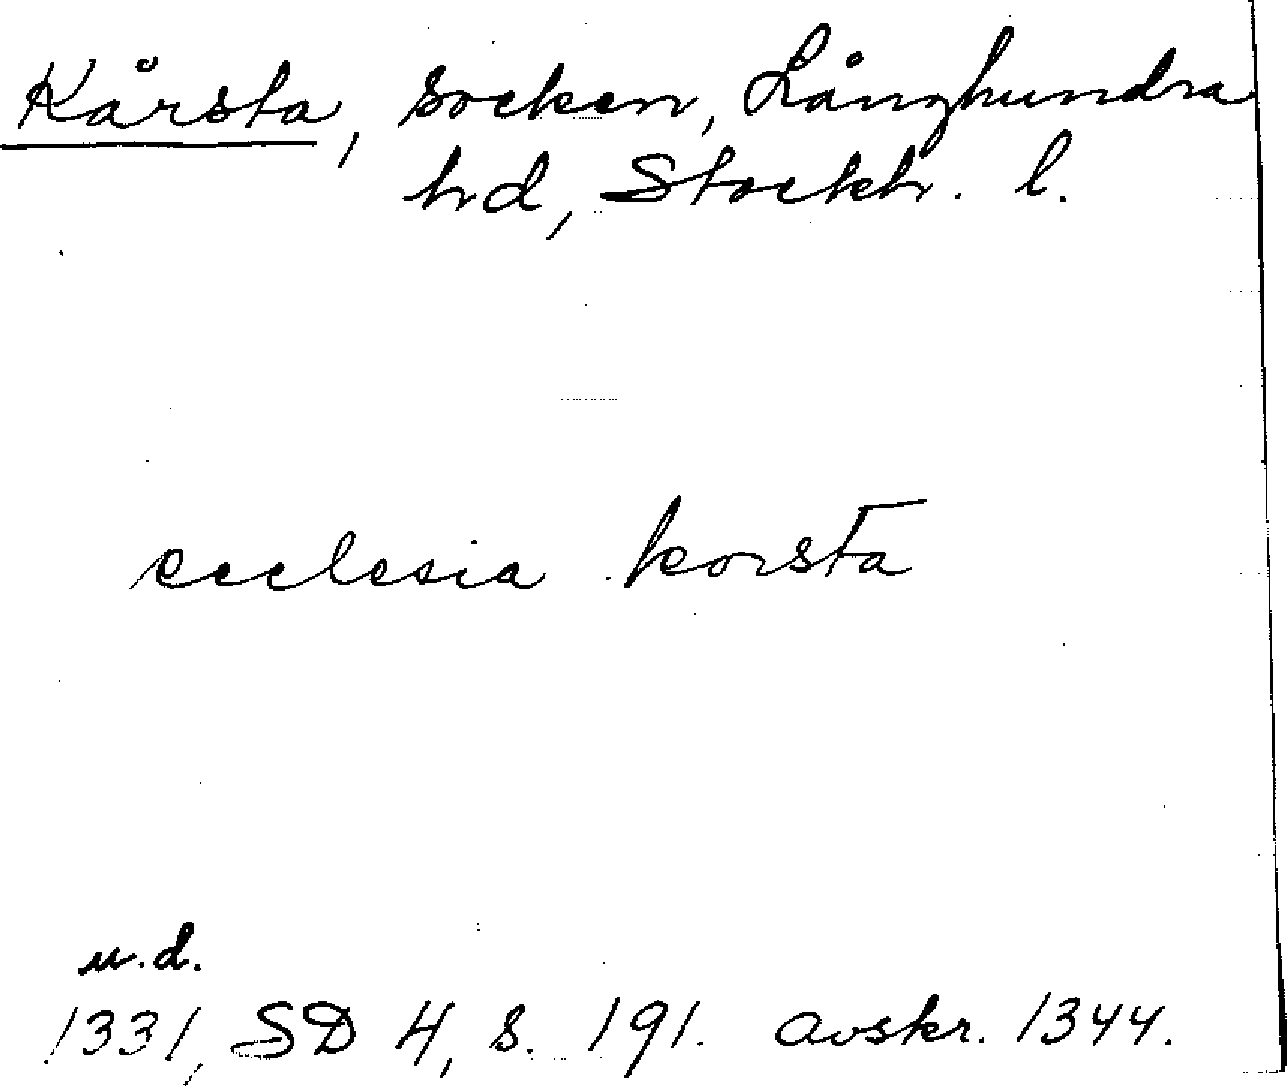 Kårsta, socken, Långhundra
hd, Stockh. l.
ecclesia korsta
u.d.
1331, SD 4, s. 191. avskr. 1344.